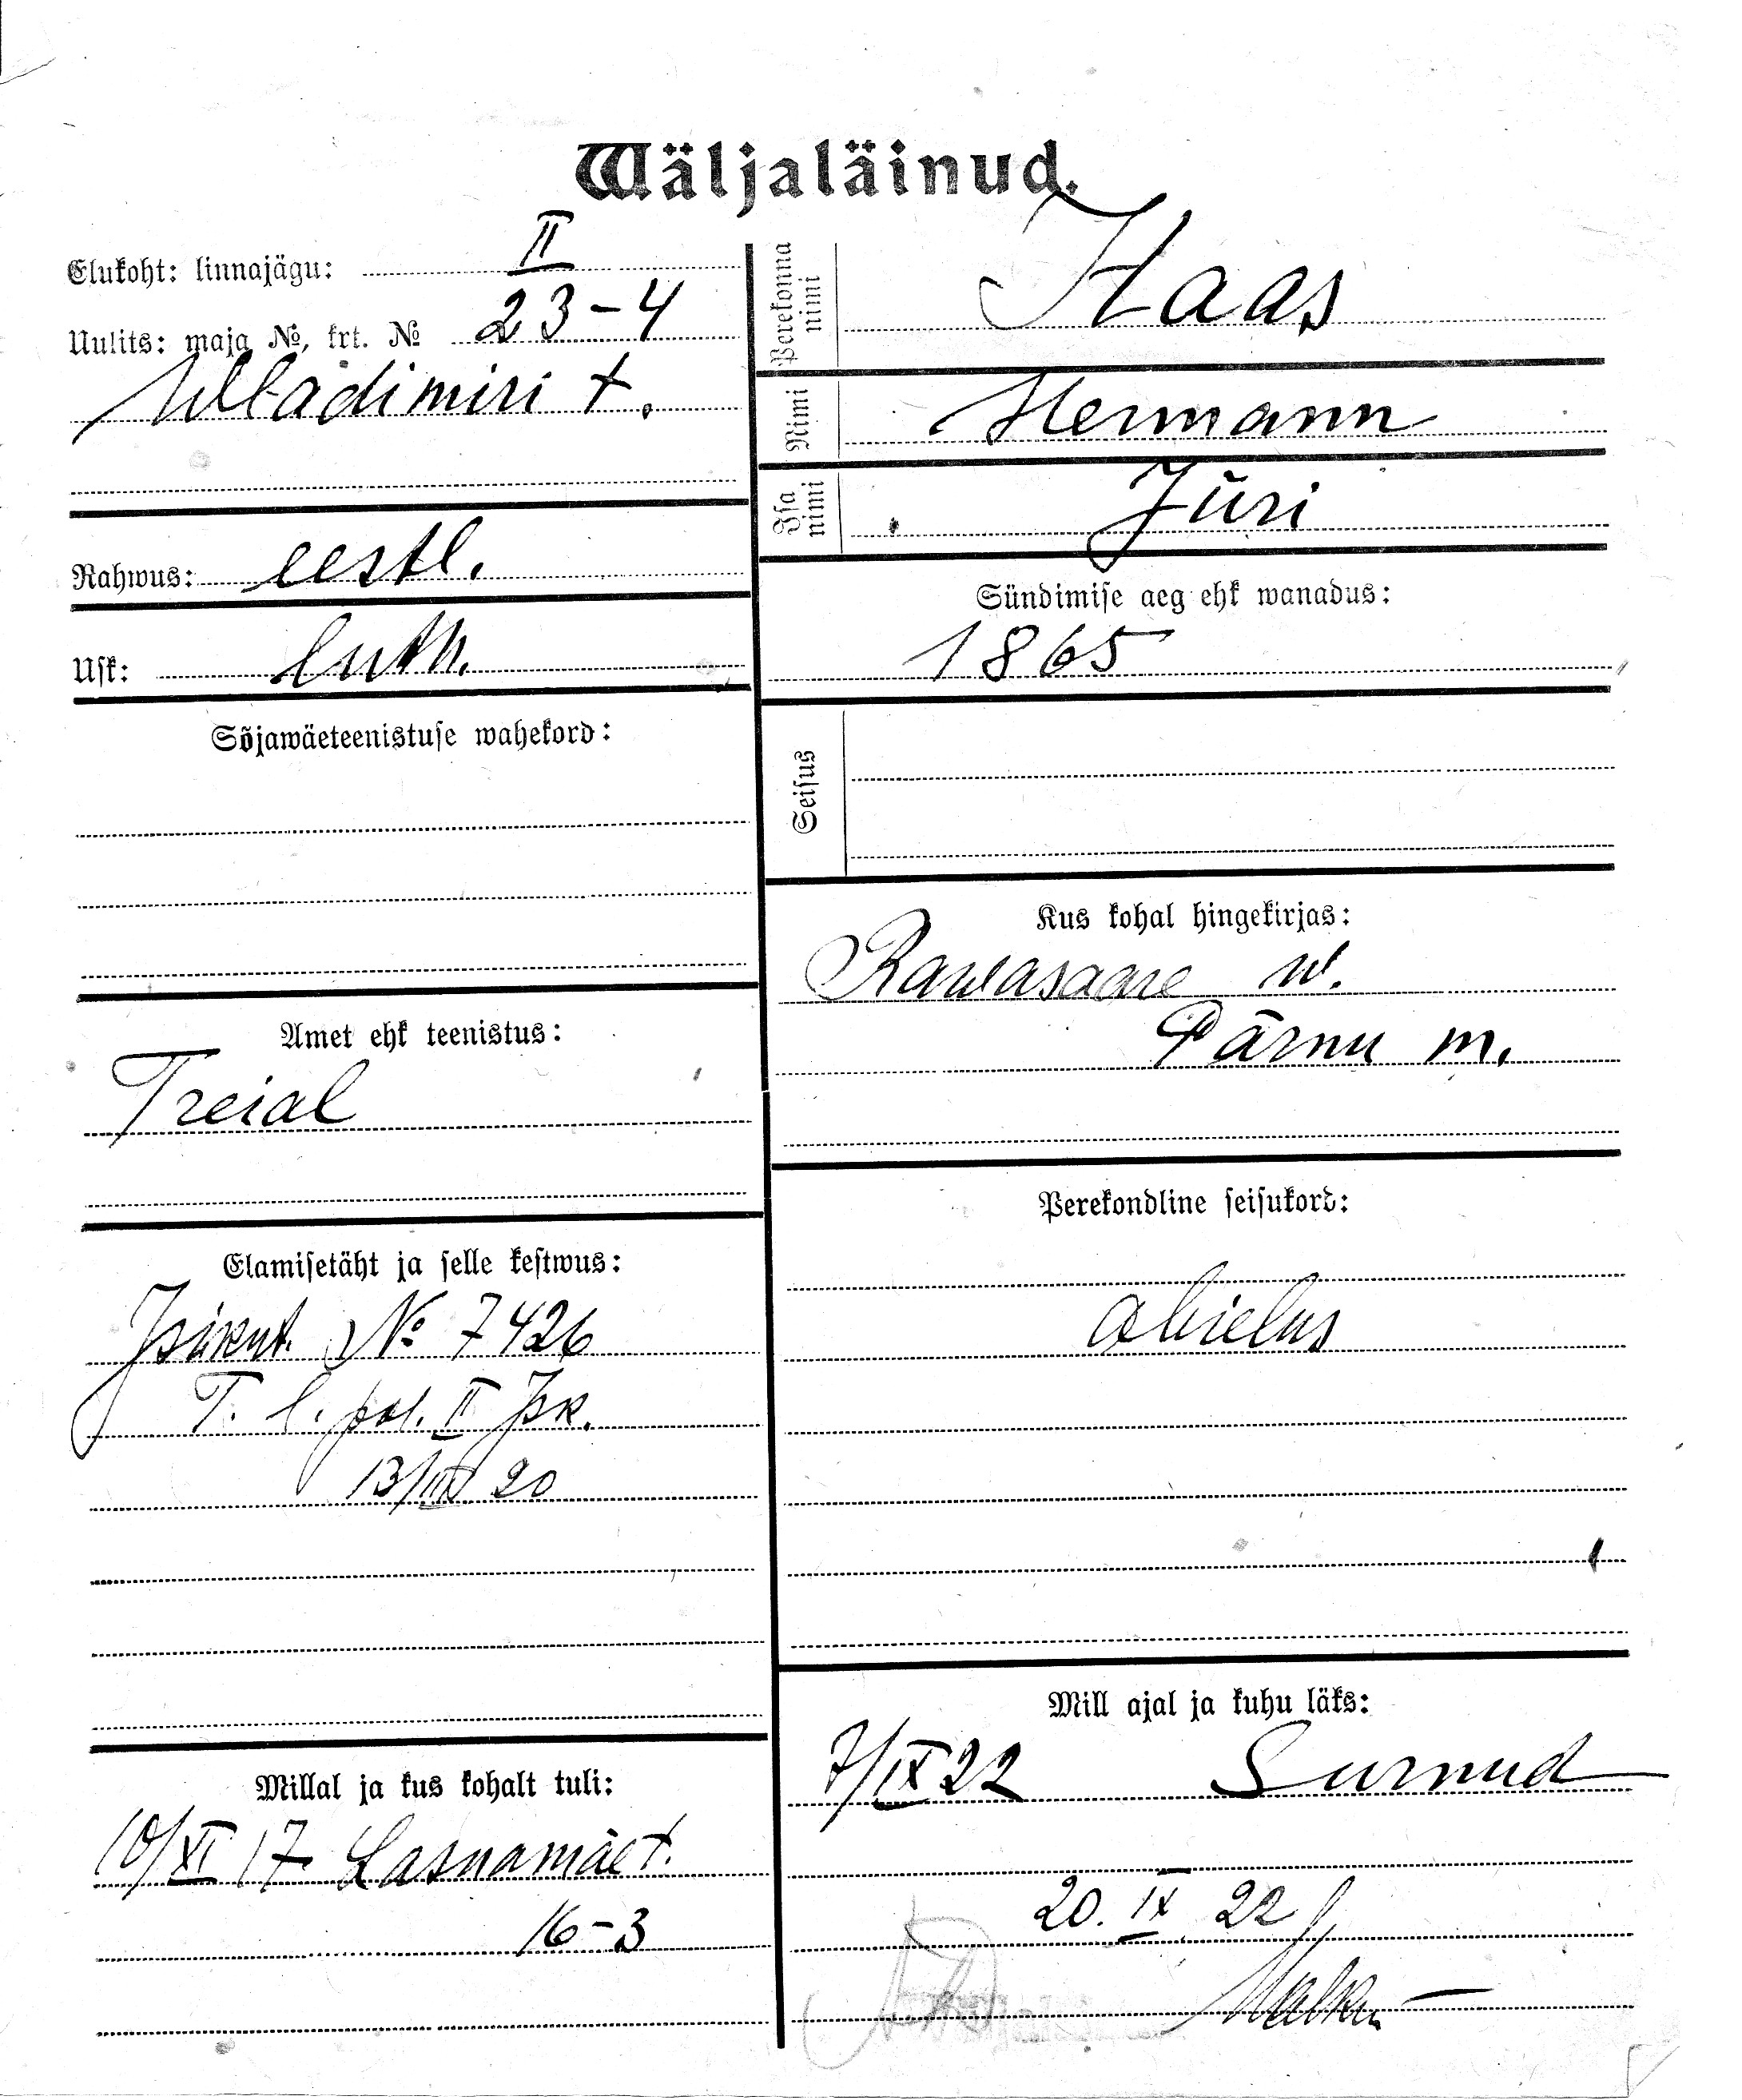 Wäljaläinud.
Elukoht: linnajägu: II
Uulits: maja №, krt. № 23-4
Wladimiri t.
Rahwus: eestl.
Usk: luth.
Sõjawäeteenistuse wahekord:
Amet ehk teenistus:
Treial
Elamisetäht ja selle kestwus:
Isikut. № 7426
T. l. pol. II Jsk.
20
Millal ja kus kohalt tuli:
10/XI 17 Lasnamäe t.
16-3
Perekonna nimi Haas
Nimi Hermann
Isa nimi Jüri
Sündimise aeg ehk wanadus:
1865
Seisus
Kus kohal hingekirjas:
Rawasaare w.
Pärnu m.
Perekondline seisukord:
abielus
Mill ajal ja kuhu läks:
7/IX 22 Surnud
20. IX 22